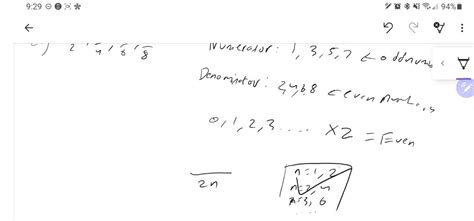 9:29
94%
Numerator: 1, 3, 5, 7 ← odd num
Denominator: 2,4,6,8 ← even num
0, 1, 2, 3 .... X2 = Even
2n
n=1, 2
n=2, 4
n=3, 6
....